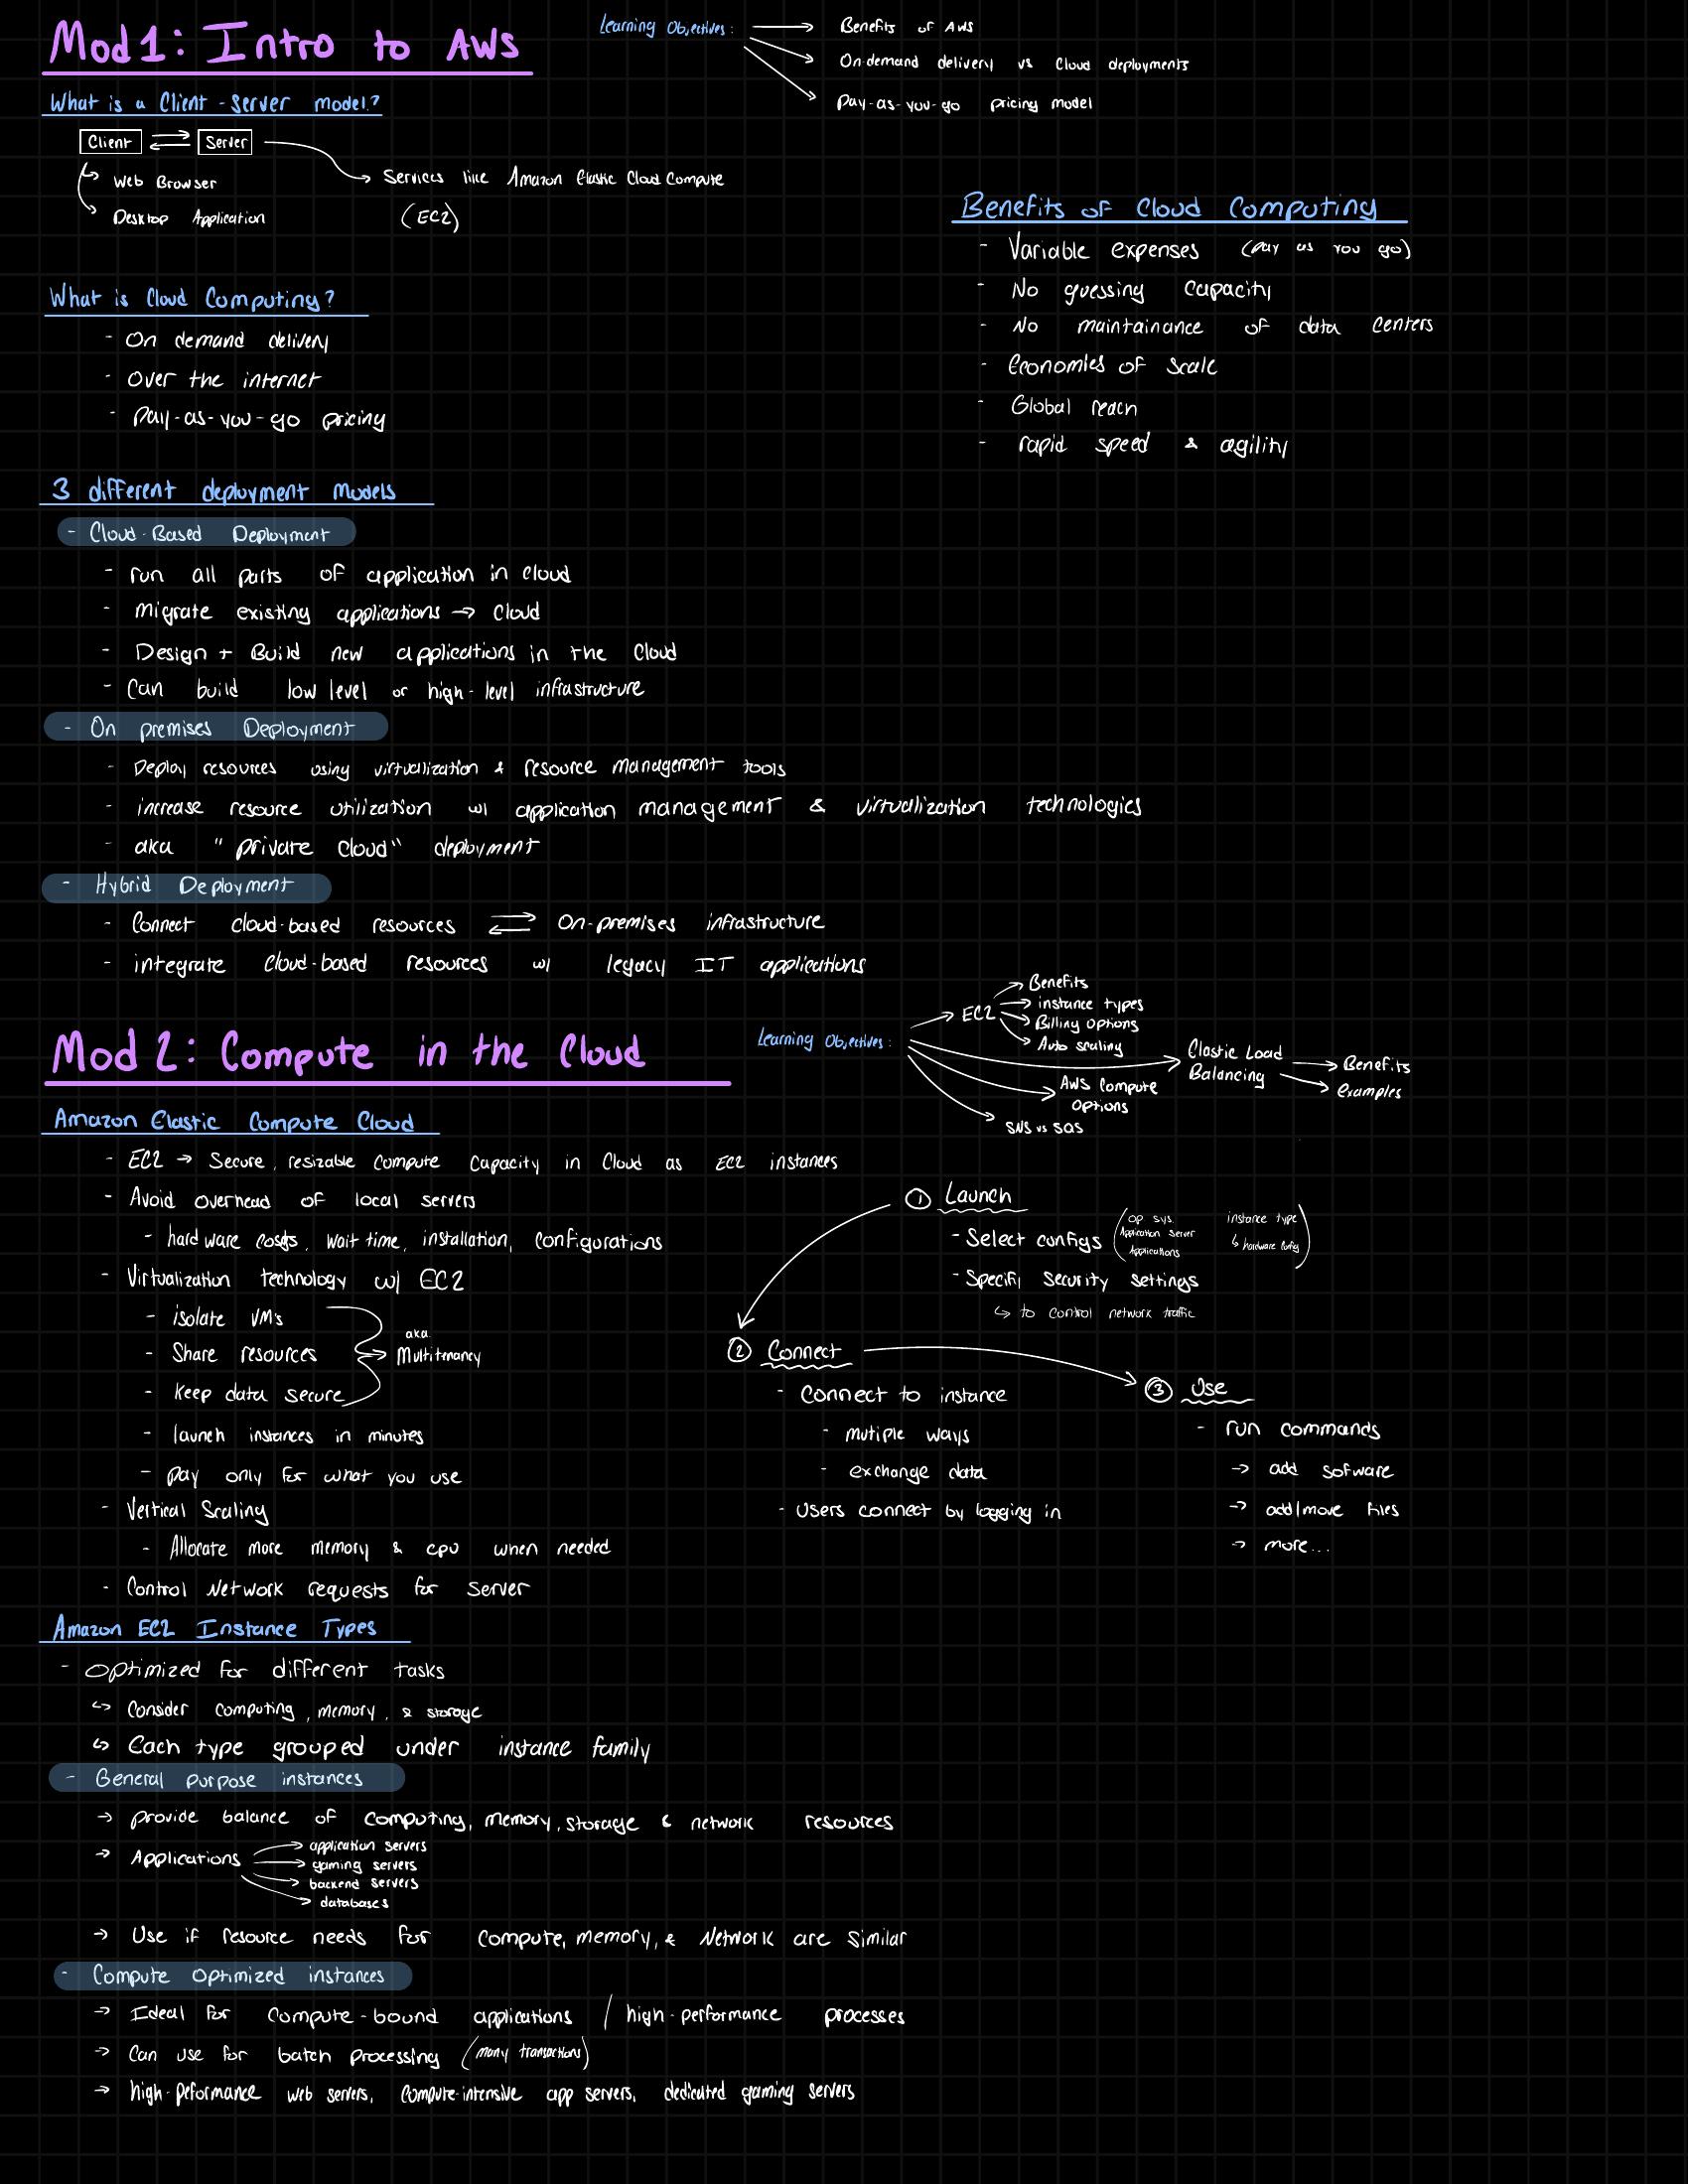 Mod 1: Intro to AWS
Learning Objectives:
Benefits of AWS
On-demand delivery vs Cloud deployments
Pay-as-you-go pricing model
What is a Client-Server model?
Client
Server
Web Browser
Desktop Application
Services like Amazon Elastic Cloud Compute
(EC2)
Benefits of Cloud Computing
- Variable expenses (pay as you go)
- No guessing capacity
- No maintainance of data centers
- Economies of scale
- Global reach
- rapid speed & agility
What is Cloud Computing?
- On demand delivery
- Over the internet
- Pay-as-you-go pricing
3 different deployment models
- Cloud-Based Deployment
- run all parts of application in cloud
- Migrate existing applications → cloud
- Design + Build new applications in the cloud
- Can build low level or high-level infrastructure
- On premises Deployment
- Deploy resources using virtualization & resource management tools
- increase resource utilization w/ application management & virtualization technologies
- aka "private cloud" deployment
- Hybrid Deployment
- Connect cloud-based resources ⇌ On-premises infrastructure
- integrate cloud-based resources w/ legacy IT applications
Mod 2: Compute in the Cloud
Learning Objectives:
→ EC2
→ Benefits
→ instance types
→ Billing Options
→ Auto scaling
Elastic Load
Balancing
→ Benefits
→ examples
AWS Compute
Options
SNS vs SQS
Amazon Elastic Compute Cloud
- EC2 → Secure, resizable compute capacity in cloud as EC2 instances
- Avoid overhead of local servers
- hardware costs, wait time, installation, configurations
- Virtualization technology w/ EC2
- isolate VMs
- Share resources
- keep data secure
aka
Multitenancy
- launch instances in minutes
- pay only for what you use
- Vertical Scaling
- Allocate more memory & cpu when needed
- Control Network requests for server
① Launch
- Select configs
(op sys.
Application Server
Applications
instance type
↳ hardware config)
- Specify security settings
↳ to control network traffic
② Connect
- Connect to instance
- mutiple ways
- exchange data
- Users connect by logging in
③ Use
- run commands
→ add sofware
→ add/move files
→ more...
Amazon EC2 Instance Types
- Optimized for different tasks
↳ Consider computing, memory, & storage
↳ Each type grouped under instance family
- General purpose instances
→ provide balance of computing, memory, storage & network resources
→ Applications
→ application servers
→ gaming servers
→ backend servers
→ databases
→ Use if resource needs for compute, memory, & Network are similar
- Compute Optimized instances
→ Ideal for compute-bound applications / high-performance processes
→ Can use for batch processing (many transactions)
→ high-peformance web servers, compute-intensive app servers, dedicated gaming servers